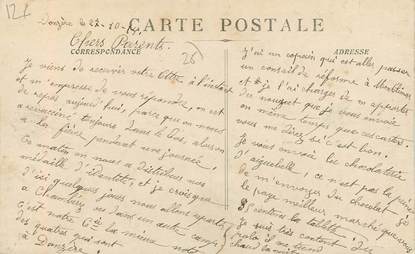 124
Donzère le 22-10-15
CARTE POSTALE
Chers Parents.
CORRESPONDANCE
26
ADRESSE
Je viens de recevoir votre lettre à l'instant
et m'empresse de vous répondre, on est
de repos aujourd'hui, parce que on nous
a vacciné toujours dans le dos, alors on
a la fièvre pendant une journée.
Ce matin on nous a distribué nos
médaille d'identité, et je crois que
d'ici quelques jours nous allons repartir
à Chambery ou dans un autre camp
C'est notre Cie la mieux noté
des quatres qui sont
à Donzère.
J'ai un copain qui est allé passer
un conseil de réforme à Montélimar
et je l'ai chargé de m'apporter
du nougat que je vous envoie
en même temps que ces cartes.
vous me direz si c'est bon.
Je vous envoie les chocolaterie
d'aiguebelle, ce n'est pas la peine
de m'envoyer du chocolat je
le paye meilleur marché que vous
50 centimes la tablette.
Je suis très content du
chaud